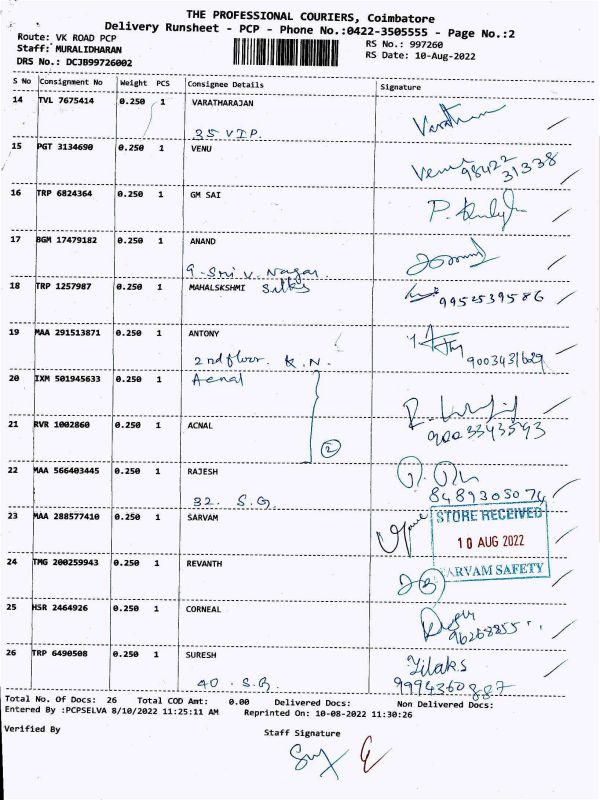 THE PROFESSIONAL COURIERS, Coimbatore
Delivery Runsheet - PCP - Phone No.:0422-3505555 - Page No.:2
Route: VK ROAD PCP
Staff: MURALIDHARAN
DRS No.: DCJB99726002
RS No.: 997260
RS Date: 10-Aug-2022
S No Consignment No Weight PCS Consignee Details Signature
14 TVL 7675414 0.250 1 VARATHARAJAN
35 V.I.P.
15 PGT 3134690 0.250 1 VENU
98422
31338
16 TRP 6824364 0.250 1 GM SAI
17 BGM 17479182 0.250 1 ANAND
9-Sri V. Nagar
18 TRP 1257987 0.250 1 MAHALSKSHMI Silks
9952539586
19 MAA 291513871 0.250 1 ANTONY
2nd floor. K.N.
9003431629
20 IXM 501945633 0.250 1 Acnal
21 RVR 1002860 0.250 1 ACNAL
2
9003343543
22 MAA 566403445 0.250 1 RAJESH
32. S.G.
8489305074
23 MAA 288577410 0.250 1 SARVAM
STORE RECEIVED
10 AUG 2022
SARVAM SAFETY
24 TMG 200259943 0.250 1 REVANTH
25 HSR 2464926 0.250 1 CORNEAL
26 TRP 6490508 0.250 1 SURESH
40. S.G.
Tilaks
9994360887
Total No. Of Docs: 26 Total COD Amt: 0.00 Delivered Docs: Non Delivered Docs:
Entered By :PCPSELVA 8/10/2022 11:25:11 AM Reprinted On: 10-08-2022 11:30:26
Verified By
Staff Signature